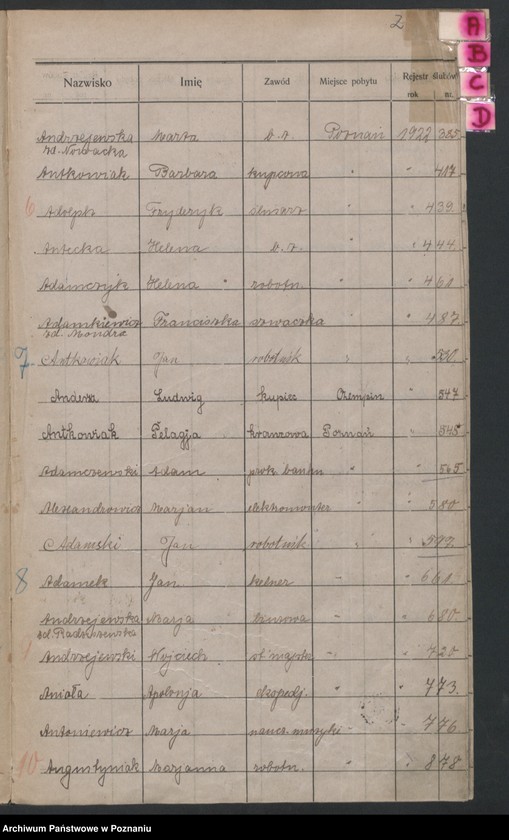 2
A
B
C
D
Nazwisko Imię Zawód Miejsce pobytu Rejestr ślubów
rok nr.
Andrzejewska Marta b. z. Poznań 1922 385
zd. Nowacka
Antkowiak Barbara kupcowa " " 417
6 Adolph Fryderyk ślusarz " " 439
Antecka Helena b. z. " " 444
Adamczyk Helena robotn. " " 461
Adamkiewicz Franciszka szwaczka " " 487
zd. Mondra
7 Antkowiak Jan robotnik " " 530
Andersa Ludwig kupiec Czempin " 547
Antkowiak Pelagja krawcowa Poznań " 545
Adamczewski Adam prok. banku " " 565
Alexandrowicz Marjan elektromonter " " 580
Adamski Jan robotnik " " 597
8 Adamek Jan kelner " " 661
Andrzejewska Marja biurowa " " 680
zd. Raduszewska
Andrzejewski Wojciech " " 720
Anioła Apolonja ekspedj. " " 773
Antoniewicz Marja naucz. muzyki " " 776
10 Augustyniak Marjanna robotn. " " 878
Archiwum Państwowe w Poznaniu